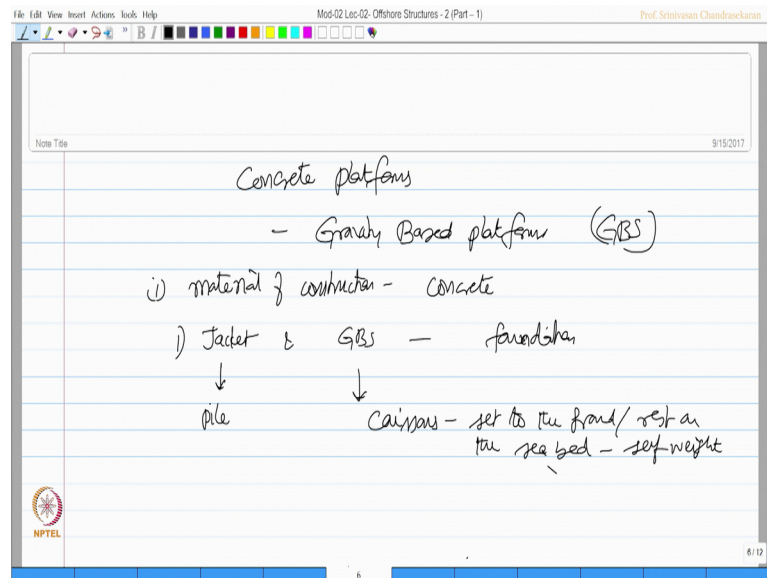 File Edit View Insert Actions Tools Help
Mod-02 Lec-02- Offshore Structures - 2 (Part – 1)
Prof. Srinivasan Chandrasekaran
B I
Note Title
9/15/2017
Concrete platforms
- Gravity Based platforms (GBS)
i) material of construction - concrete
1) Jacket & GBS - foundation
pile
Caissons - set to the ground/rest on
the sea bed - self weight
NPTEL
6/12
6